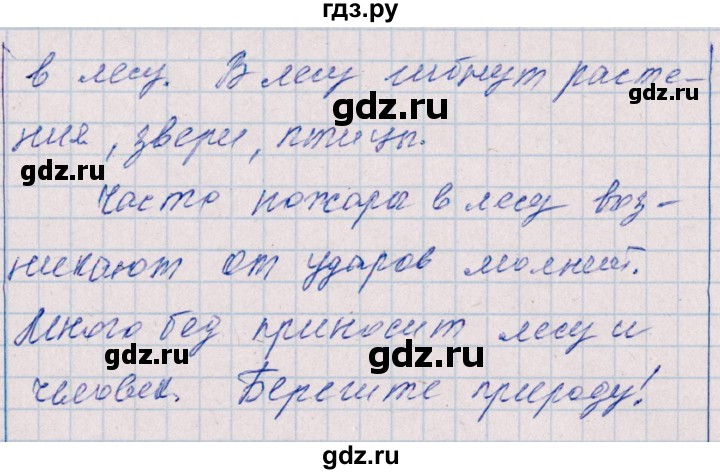 гдз.ру
в лесу. В лесу гибнут расте-
gdz.ru
gdz.ru
ния, звери, птицы.
gdz.ru
Часто пожары в лесу воз-
gdz.ru
никают от ударов молний.
gdz.ru
Много бед приносит лесу и
gdz.ru
gdz.ru
человек. Берегите природу!
gdz.ru